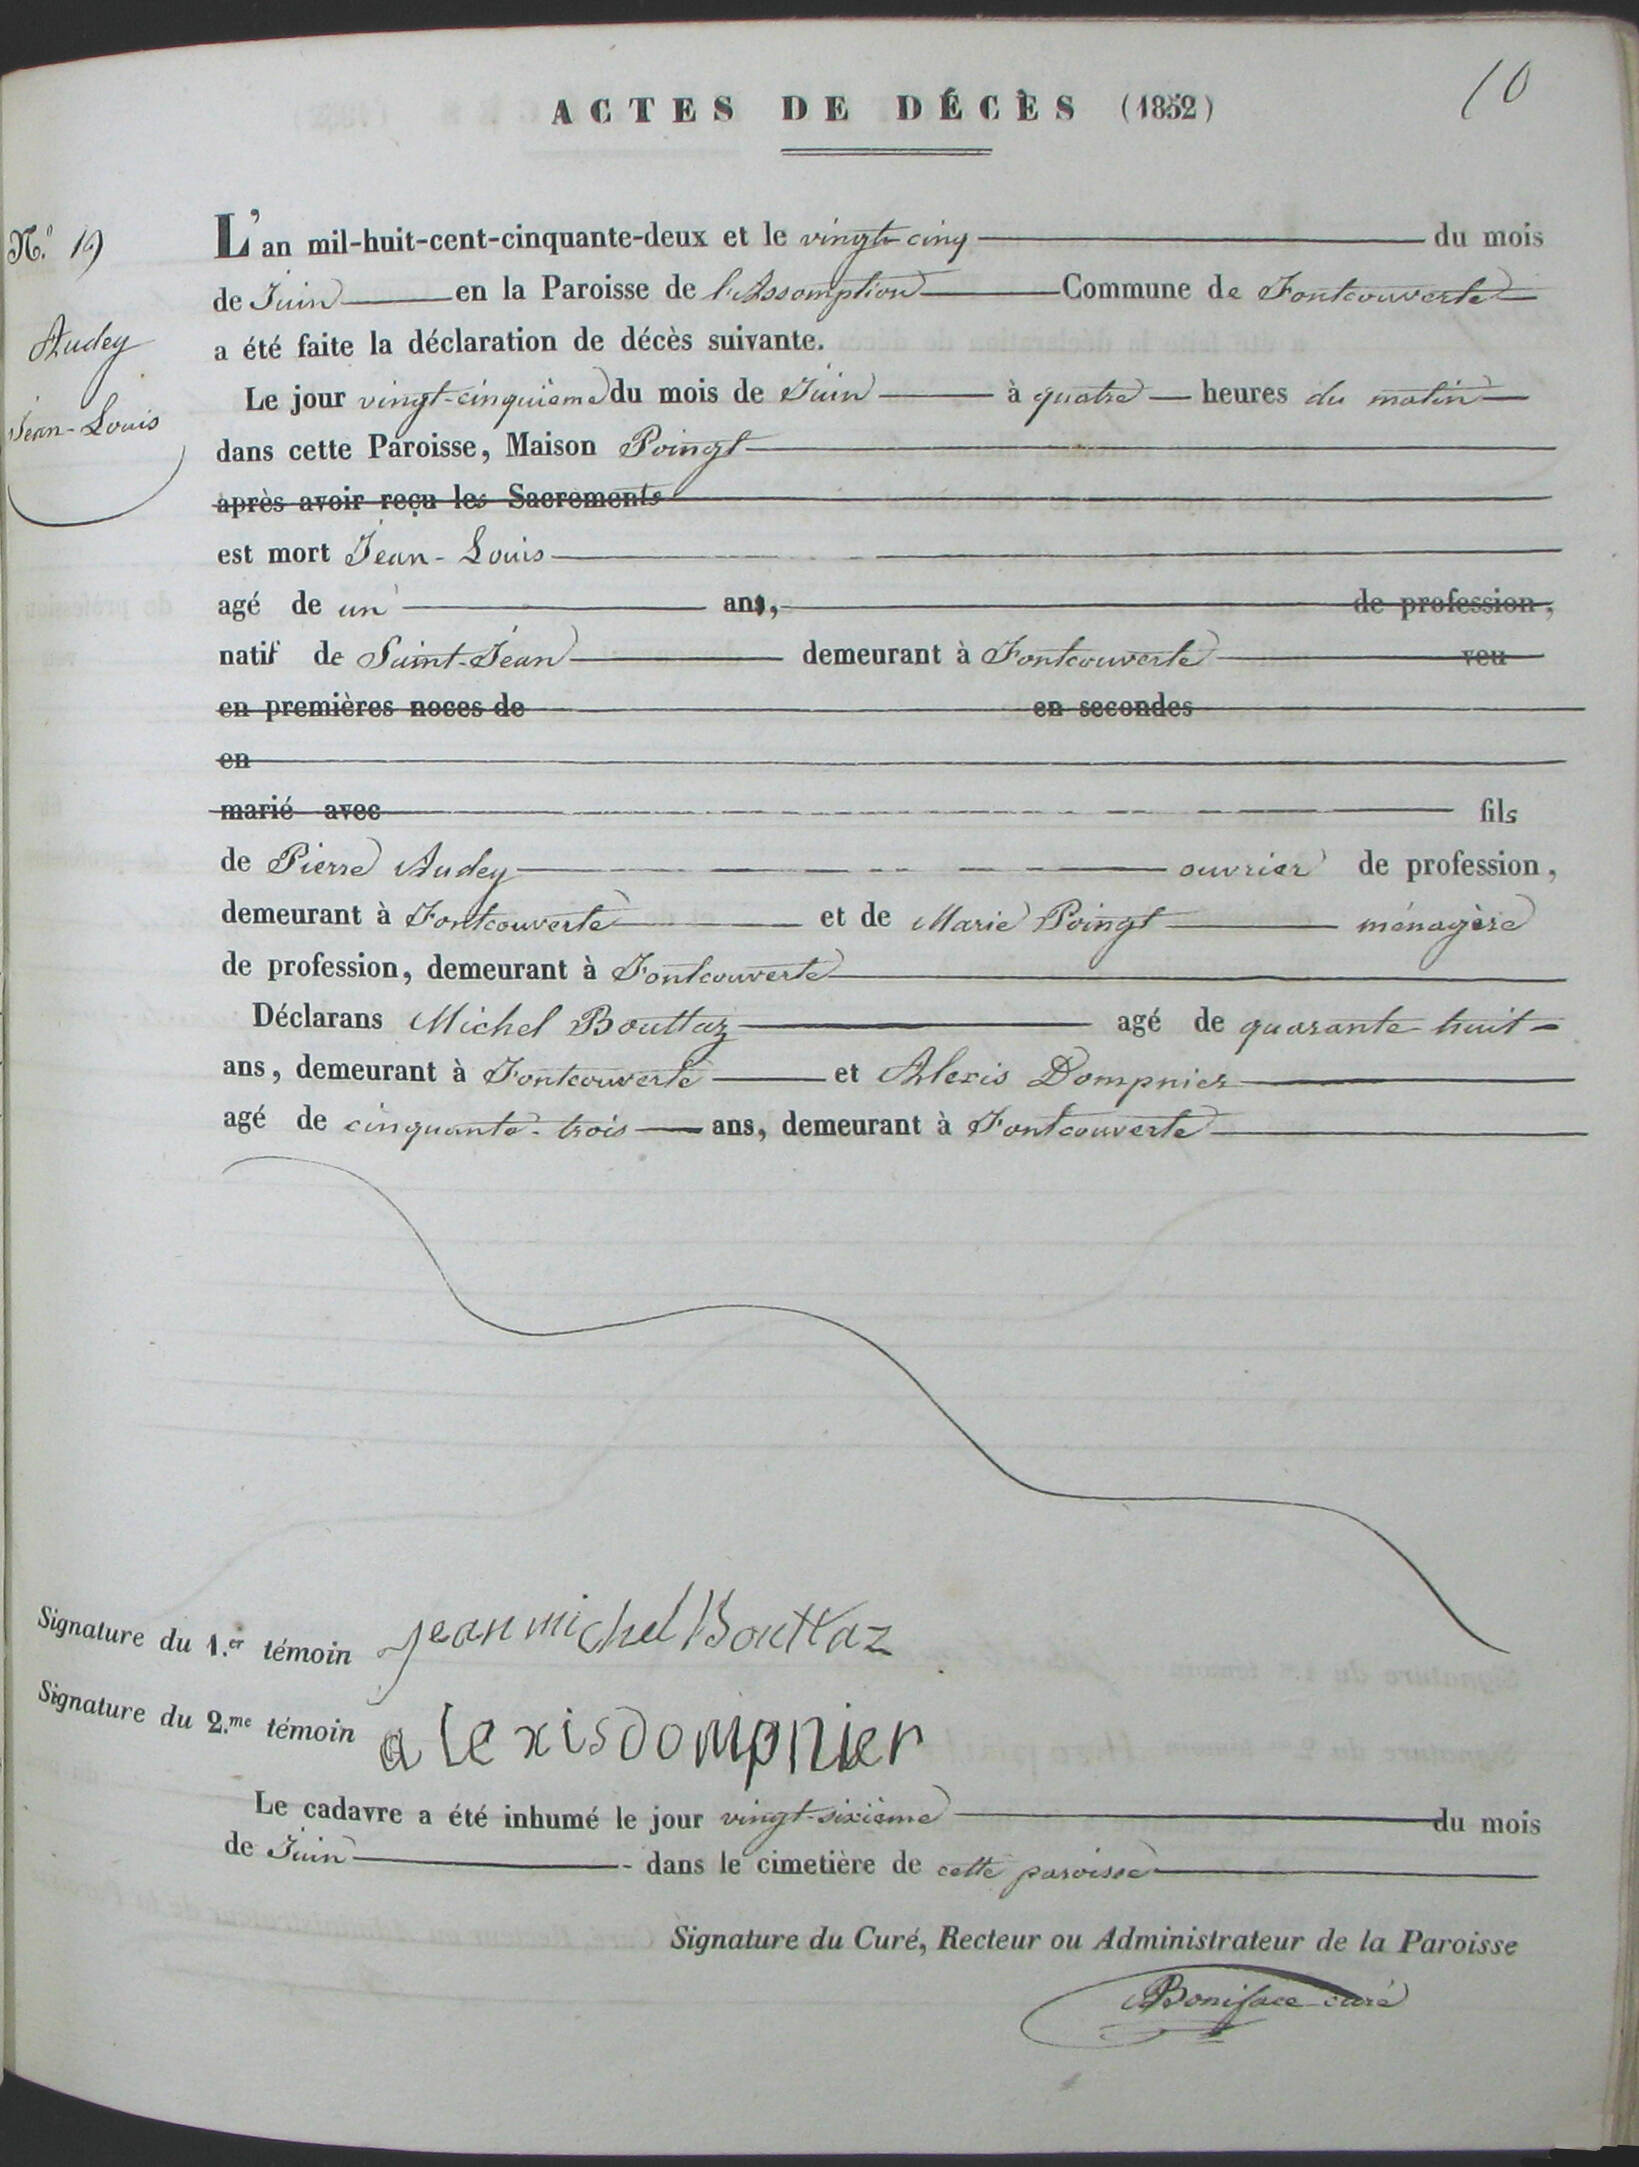 ACTES DE DÉCÈS (1852)
10
N.º 19
Audey
Jean-Louis
L'an mil-huit-cent-cinquante-deux et le vingt-cinq du mois
de Juin en la Paroisse de l'Assomption Commune de Fontcouverte
a été faite la déclaration de décès suivante.
Le jour vingt-cinquième du mois de Juin à quatre heures du matin
dans cette Paroisse, Maison Poingt
après avoir reçu les Sacrements
est mort Jean-Louis
agé de un ans,
de profession,
natif de Saint-Jean demeurant à Fontcouverte veu
en premières noces de en secondes
en
marié avec fils
de Pierre Audey ouvrier de profession,
demeurant à Fontcouverte et de Marie Poingt ménagère
de profession, demeurant à Fontcouverte
Déclarans Michel Bouttaz agé de quarante-huit
ans, demeurant à Fontcouverte et Alexis Dompnier
agé de cinquante-trois ans, demeurant à Fontcouverte
Signature du 1.er témoin jean michel Bouttaz
Signature du 2.me témoin alexis dompnier
Le cadavre a été inhumé le jour vingt-sixième du mois
de Juin dans le cimetière de cette paroisse
Signature du Curé, Recteur ou Administrateur de la Paroisse
Boniface curé